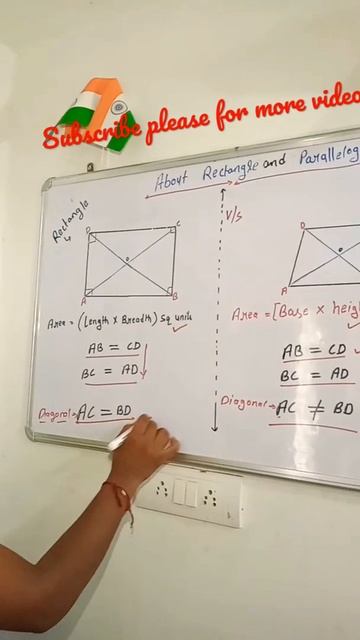 Subscribe please for more video
About Rectangle and Parallelog
Rectangle
V/s
D
C
A
B
O
Area = (Length × Breadth) Sq units
AB = CD
BC = AD
Diagonal → AC = BD
D
A
O
Area = [Base × heigh
AB = CD
BC = AD
Diagonal → AC ≠ BD